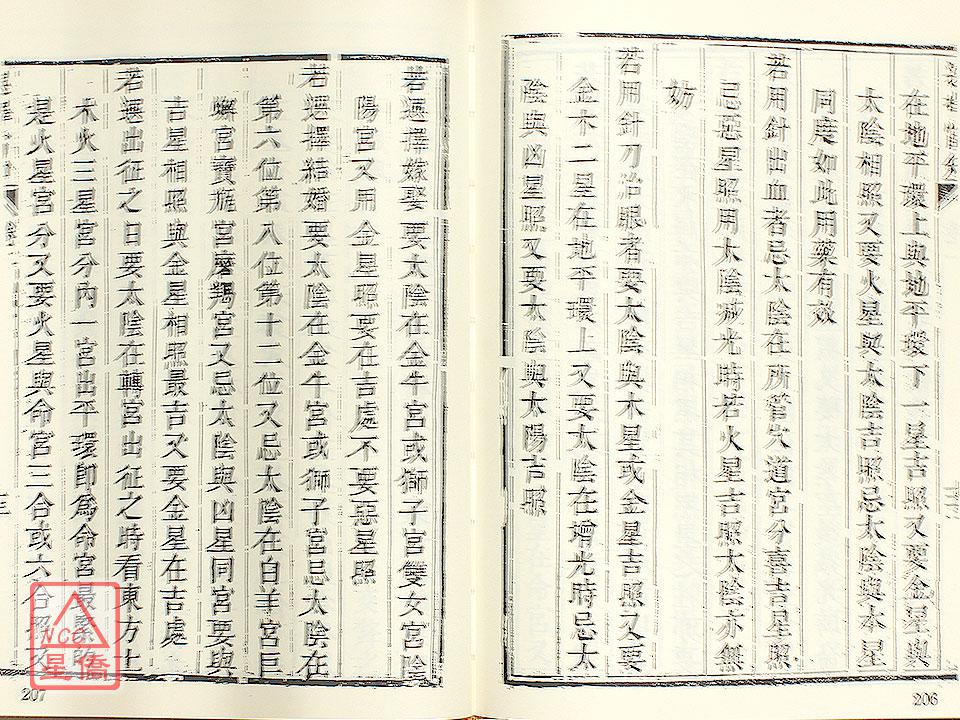 在地平環上與地平環下一星吉照又要金星與
太陰相照又要火星與太陰吉照忌太陰與本星
同度如此用藥有效
若用針出血者忌太陰在所管欠道宮分喜吉星照
忌惡星照用太陰減光時若火星吉照太陰亦無
妨
若用針刀治眼者要太陰與木星或金星吉照又要
金木二星在地平環上又要太陰在增光時忌太
陰與凶星照又要太陰與太陽吉照
206
若選擇嫁娶要太陰在金牛宮或獅子宮雙女宮陰
陽宮又用金星照要在吉處不要惡星照
若選擇結婚要太陰在金牛宮或獅子宮忌太陰在
第六位第八位第十二位又忌太陰在白羊宮巨
蠏宮寶瓶宮磨羯宮又忌太陰與凶星同宮要與
吉星相照與金星相照最吉又要金星在吉處
若選出征之日要太陰在轉宮出征之時看東方土
木火三星宮分內一宮出平環即為命宮最緊的
是火星宮分又要火星與命宮三合或六合照又
207
NCC
星僑